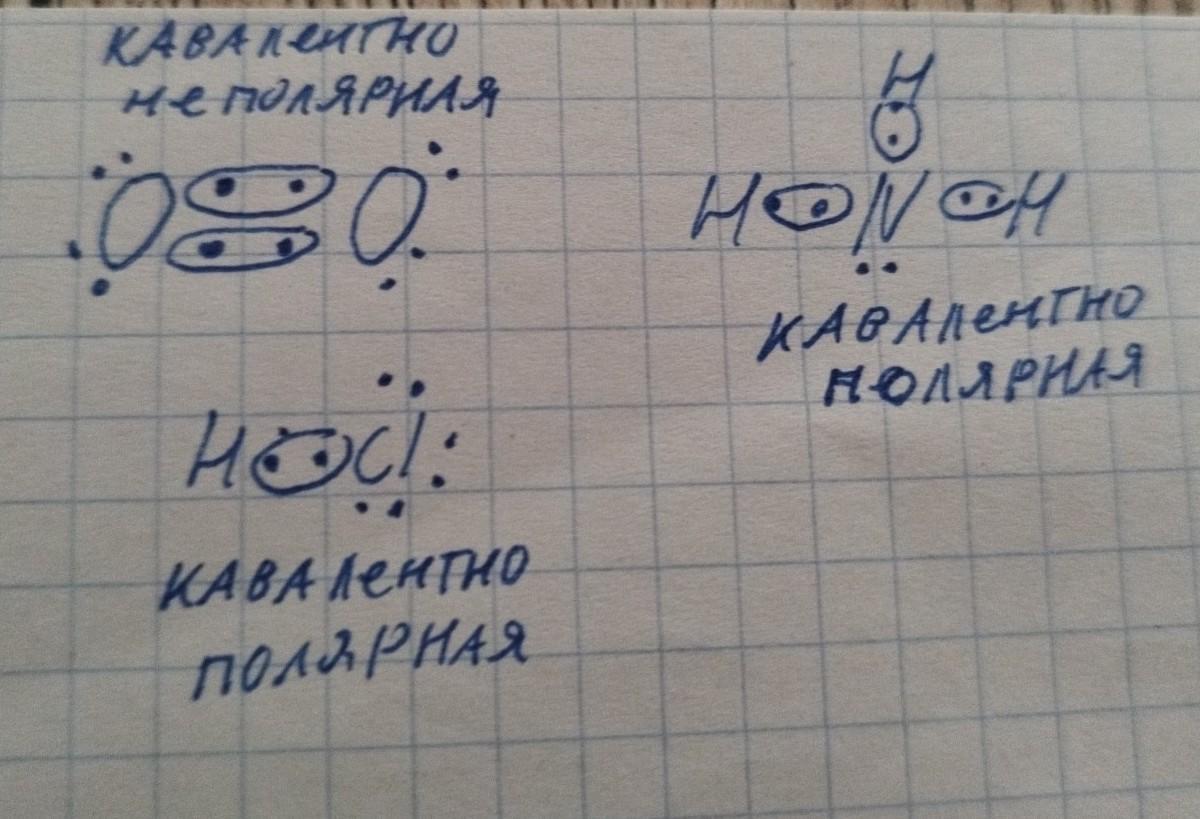 КАВАЛЕНТНО
НЕПОЛЯРНАЯ
O O
H
H N H
КАВАЛЕНТНО
ПОЛЯРНАЯ
H Cl
КАВАЛЕНТНО
ПОЛЯРНАЯ